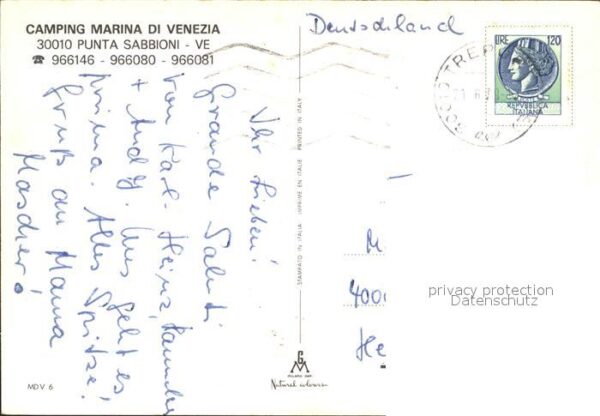 CAMPING MARINA DI VENEZIA
30010 PUNTA SABBIONI - VE
☎ 966146 - 966080 - 966081
Ihr Lieben!
Grande Saluti
von Karl-Heinz,
+ Andy. Uns geht es
prima. Alles Spitze!
Gruß an Mama
MDV 6
STAMPATO IN ITALIA IMPRIMÉ EN ITALIE PRINTED IN ITALY
Natural colour
Deutschland
LIRE 120
REPVBBLICA
ITALIANA
M
400
He
privacy protection
Datenschutz